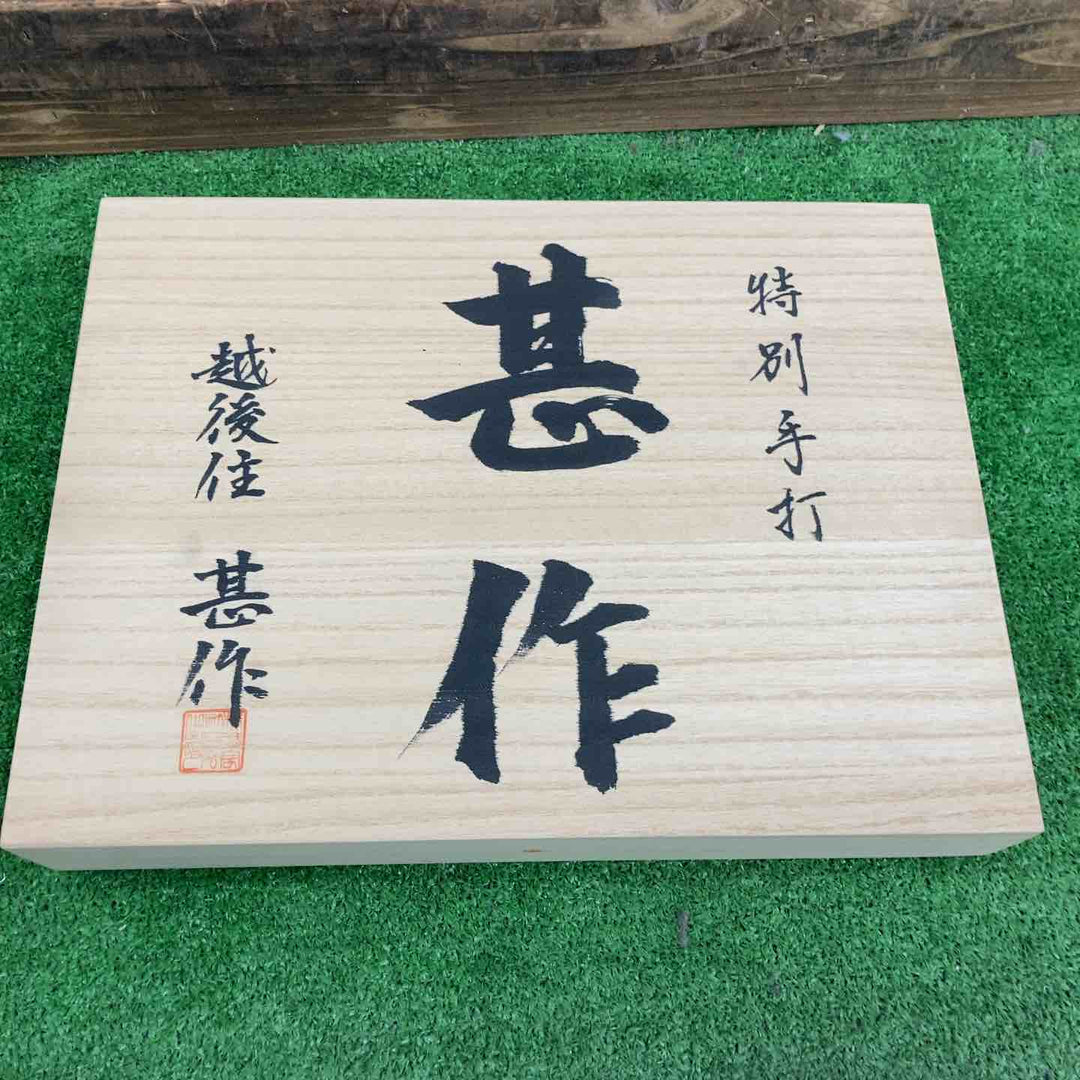 特別手打
甚作
越後住 甚作